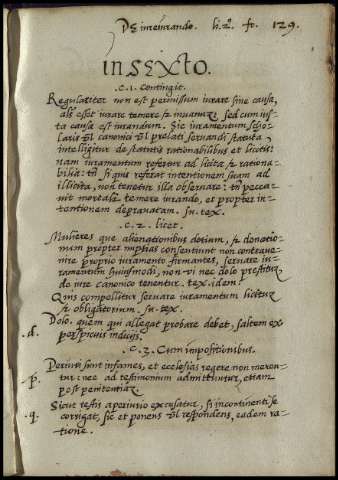 De iureiurando. li. 2º. fo. 129.
IN SEXTO.
.c. 1. Contingit.
Regulariter non est permissum iurare sine causa,
als esset iurare temere & in uanuz, sed cum ius-
ta causa est iurandum. Sic iuramentum scho-
laris vl canonici vl prelati seruandi statuta
intelligitur de statutis rationabilibus et licitis:
nam iuramentum refertur ad licita & rationa-
bilia: tn si quis referat intentionem suam ad
illicita, non tenetur illa obseruare: tn pecca-
uit mortalr temere iurando, et propter in-
tentionem deprauatam. su. tex.
.c. 2. licet.
Mulieres que alienationibus dotium, & donatio-
num propter nuptias consentiunt non contraue-
nire proprio iuramento firmantes, seruare iu-
ramentum huiusmodi, non vi nec dolo prestituz
de iure canonico tenentur. tex. idem.
Quis compellitur seruare iuramentum licituz
& obligatorium. su. tex.
.d. Dolo. quem qui allegat probare debet, saltem ex
perspicuis indicijs.
.c. 3. Cum impositionibus.
.p. Periuri sunt infames, et ecclesias regere non meren-
tur: nec ad testimonium admittuntur, etiam
post penitentiaz.
.q. Sicut testis a periurio excusatur, si incontinenti se
corrigat, sic et ponens vl respondens, eadem ra-
tione.